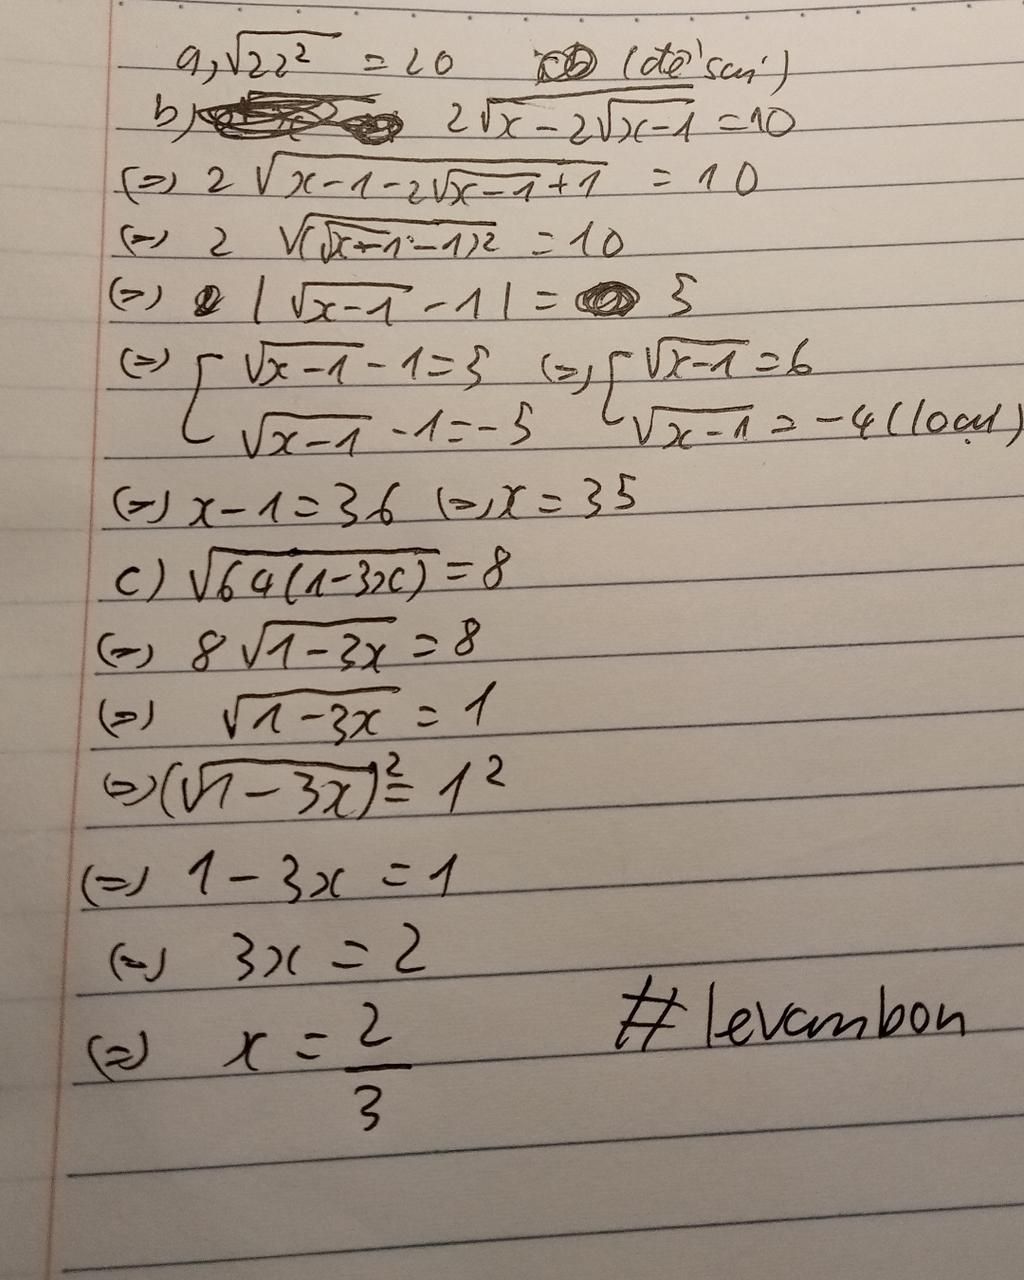 a, √22² = 20 (đề sai)
b) 2√x-2√x-1 = 10
(=) 2 √x-1-2√x-1+1 = 10
(=) 2 √(√x-1-1)² = 10
(=) |√x-1 - 1| = 5
(=) [ √x-1 - 1 = 5 (=) [ √x-1 = 6
√x-1 - 1 = -5 √x-1 = -4 (loại)
(=) x-1 = 36 (=) x = 35
c) √64(1-3x) = 8
(=) 8√1-3x = 8
(=) √1-3x = 1
(=) (√1-3x)² = 1²
(=) 1-3x = 1
(=) 3x = 2
(=) x = 2/3
#levanbon